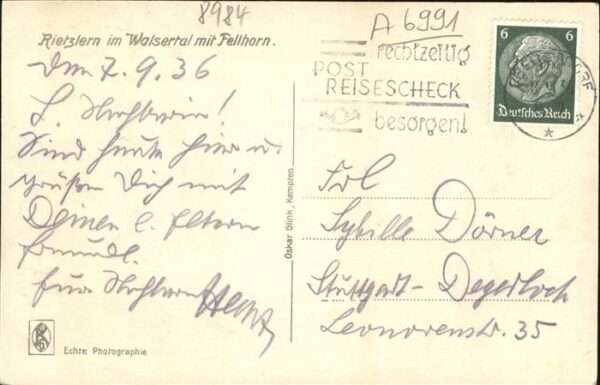 8984
A 6991
Rietzlern im Walsertal mit Fellhorn.
Den 7.9.36
L. Nachbarin!
Sind heute hier u.
grüßen Dich mit
Deinen l. Eltern
freundl.
rechtzeitig
POST
REISESCHECK
besorgen!
6 6
Deutsches Reich
Frl
Sybille Dörner
Stuttgart-Degerloch
Leonorenstr. 35
Oskar Glink, Kempten
Echte Photographie